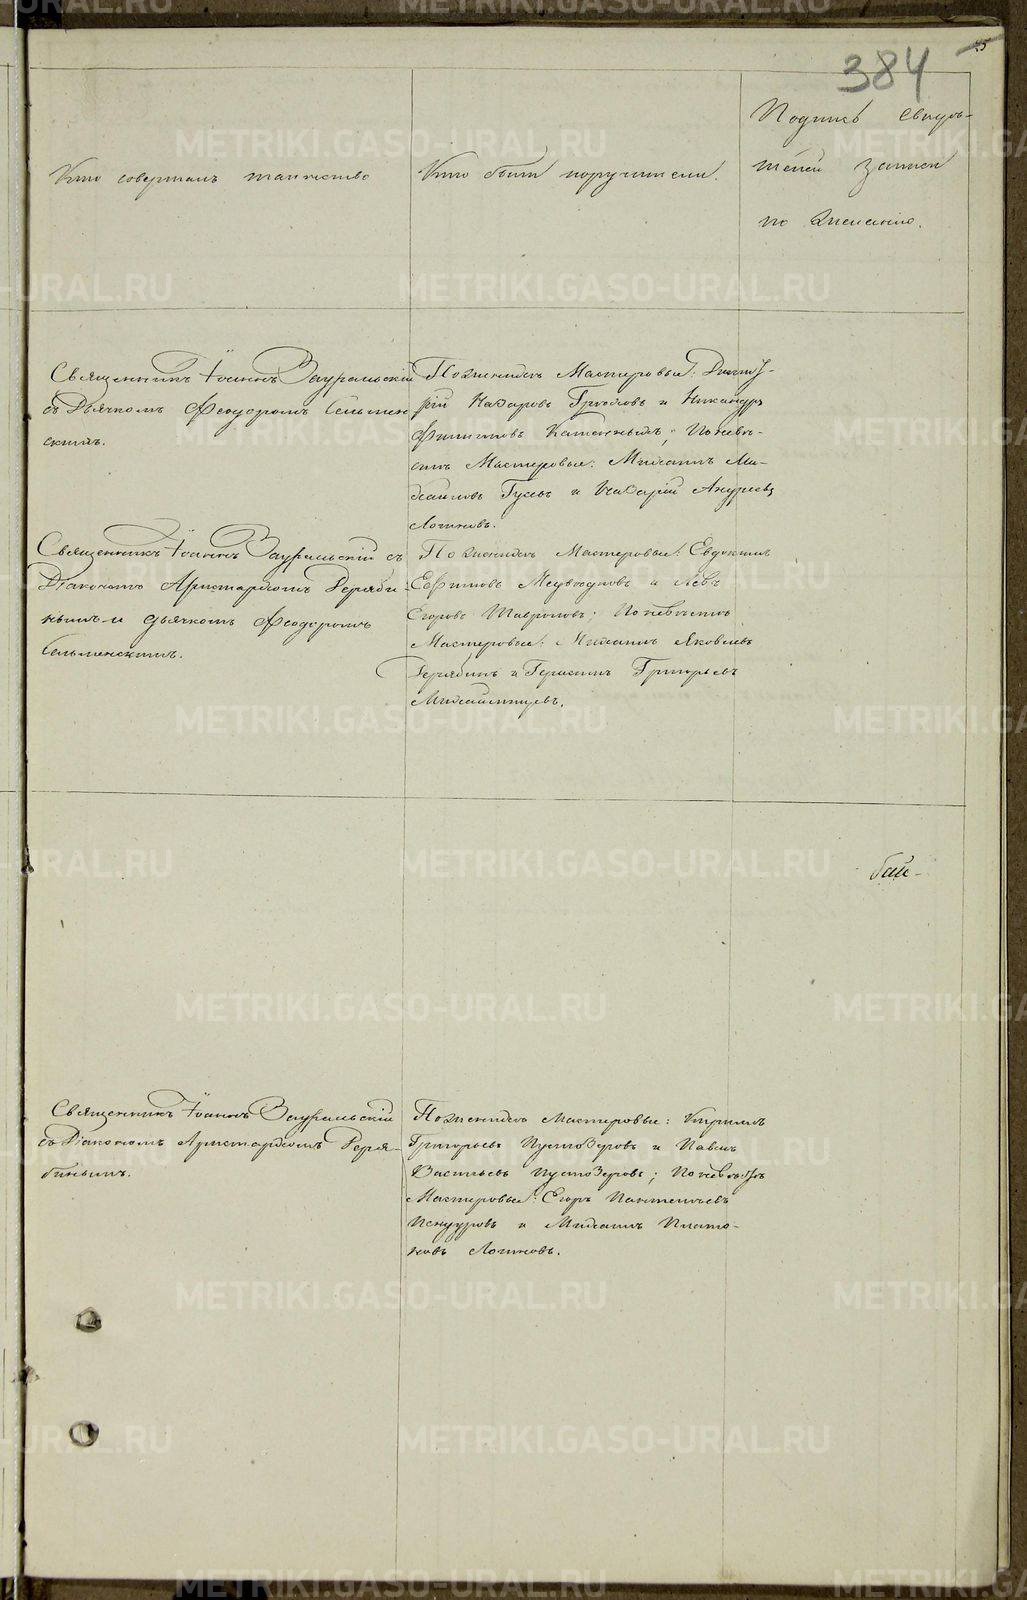 384
Кто совершалъ таинство
Кто были поручители.
Подпись свидѣ-
телей записи
по желанію.
Священникъ Іоаннъ Зауральскій
съ Дьячкомъ Ѳеодоромъ Сельмен
скимъ.
По женихѣ Мастеровые: Димит-
рій Назаровъ и Никандръ
Филиповъ; По невѣ-
стѣ Мастеровые: Михаилъ Ми-
хаиловъ Гусевъ и Назарій Андреевъ
Логиновъ.
Священникъ Іоаннъ Зауральскій съ
Діакономъ Аристархомъ Деряби-
нымъ и дьячкомъ Ѳеодоромъ
Сельменскимъ.
По женихѣ Мастеровые: Евдокимъ
Ефимовъ Медвѣдковъ и Левъ
Егоровъ; По невѣстѣ
Мастеровые: Михаилъ Яковлевъ
Дерябинъ и Герасимъ Григорьевъ
Священникъ Іоаннъ Зауральскій
съ Діакономъ Аристархомъ Деря-
бинымъ.
По женихѣ Мастеровые: Кириллъ
Григорьевъ Пустозеровъ и Павелъ
Васильевъ Пустозеровъ; По невѣстѣ
Мастеровые: Егоръ Пантелеевъ
и Михаилъ Плато-
новъ Логиновъ.
METRIKI.GASO-URAL.RU